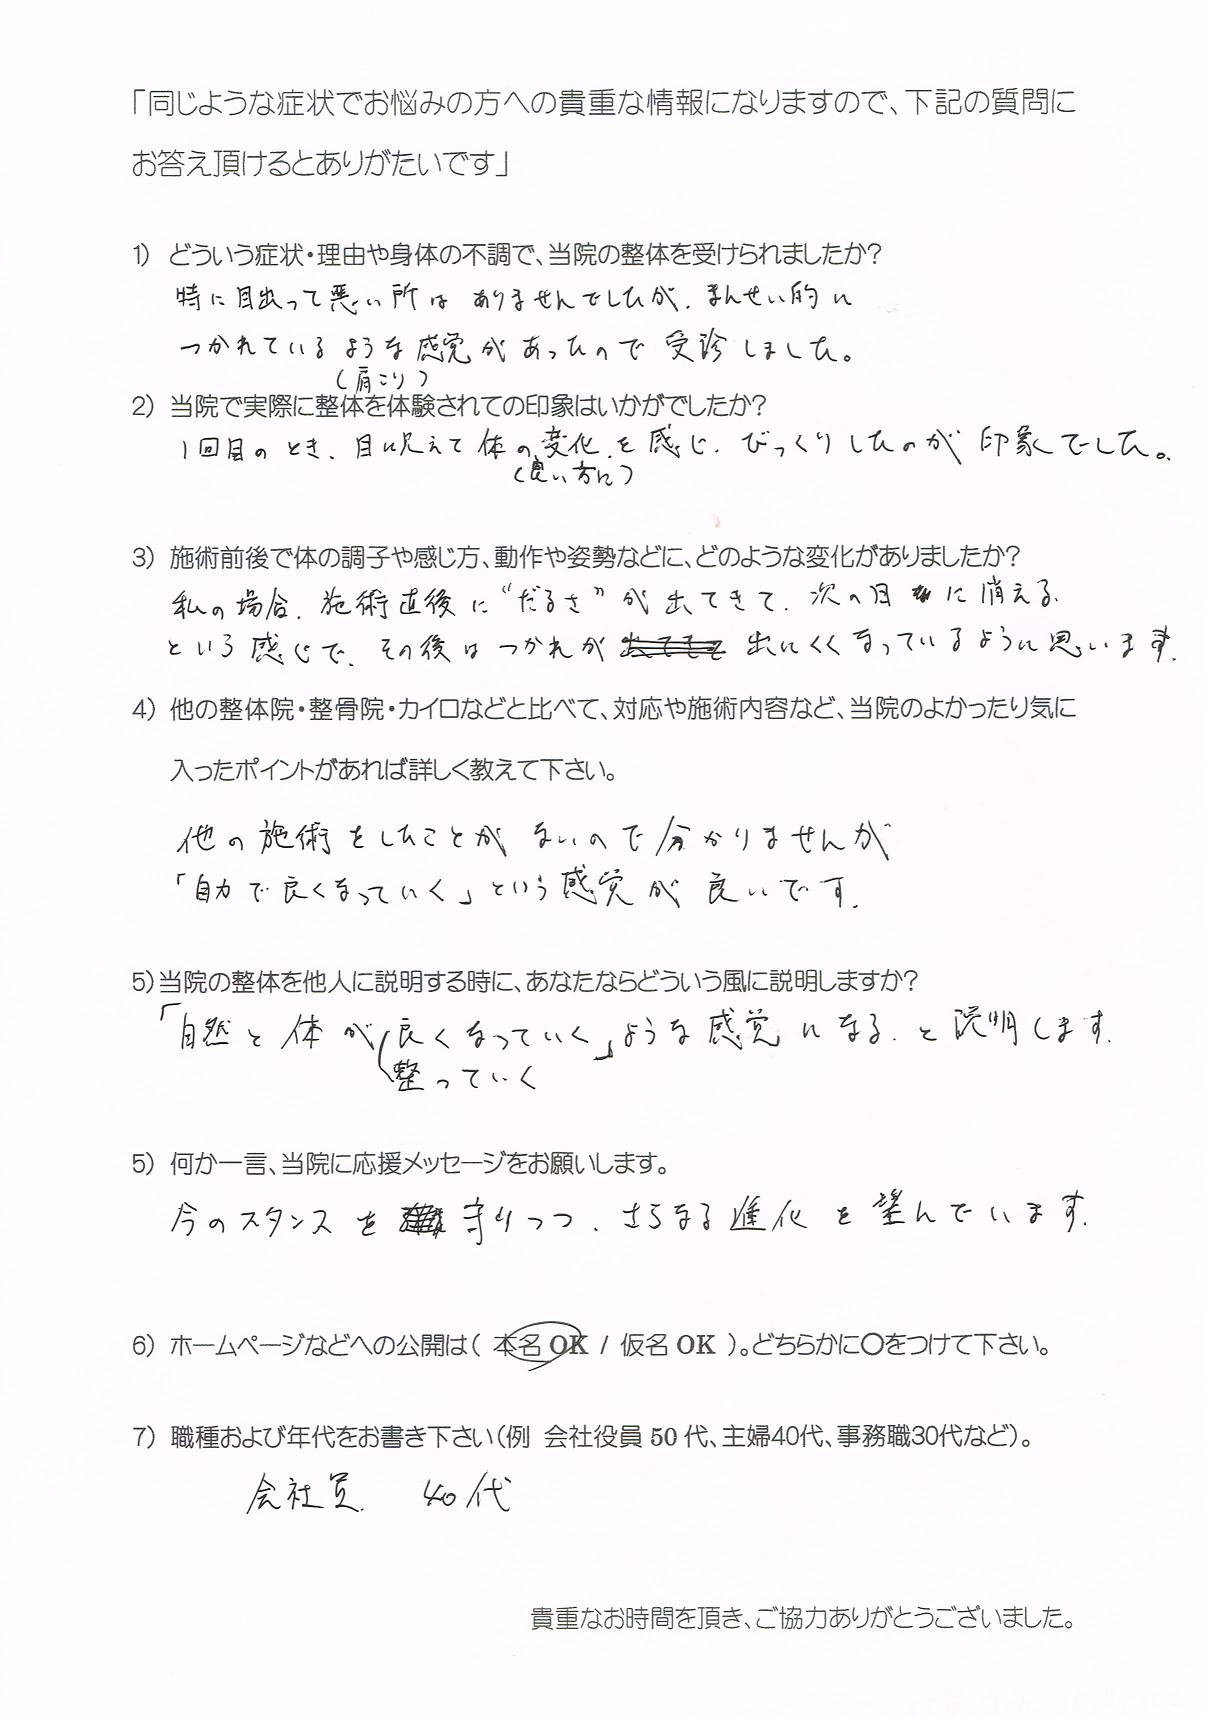 「同じような症状でお悩みの方への貴重な情報になりますので、下記の質問に
お答え頂けるとありがたいです」
1) どういう症状・理由や身体の不調で、当院の整体を受けられましたか？
特に目出って悪い所は ありませんでしたが、まんせい的に
つかれているような感覚があったので 受診しました。
（肩こり）
2) 当院で実際に整体を体験されての印象はいかがでしたか？
1回目のとき、目に見えて体の変化を感じ、びっくりしたのが印象でした。
（良い方に）
3) 施術前後で体の調子や感じ方、動作や姿勢などに、どのような変化がありましたか？
私の場合、施術直後に"だるさ"が出てきて、次の日に消える
という感じで、その後はつかれが 出にくくなっているように思います.
4) 他の整体院・整骨院・カイロなどと比べて、対応や施術内容など、当院のよかったり気に
入ったポイントがあれば詳しく教えて下さい。
他の施術をしたことがないので分かりませんが
「自力で良くなっていく」という感覚が良いです.
5)当院の整体を他人に説明する時に、あなたならどういう風に説明しますか？
「自然と体が良くなっていく」ような感覚になる.と説明します.
整っていく
5) 何か一言、当院に応援メッセージをお願いします。
今のスタンスを 守りつつ、さらなる進化を望んでいます.
6) ホームページなどへの公開は（ 本名 OK / 仮名 OK ）。どちらかに〇をつけて下さい。
7) 職種および年代をお書き下さい（例 会社役員 50 代、主婦40代、事務職30代など）。
会社員 40代
貴重なお時間を頂き、ご協力ありがとうございました。